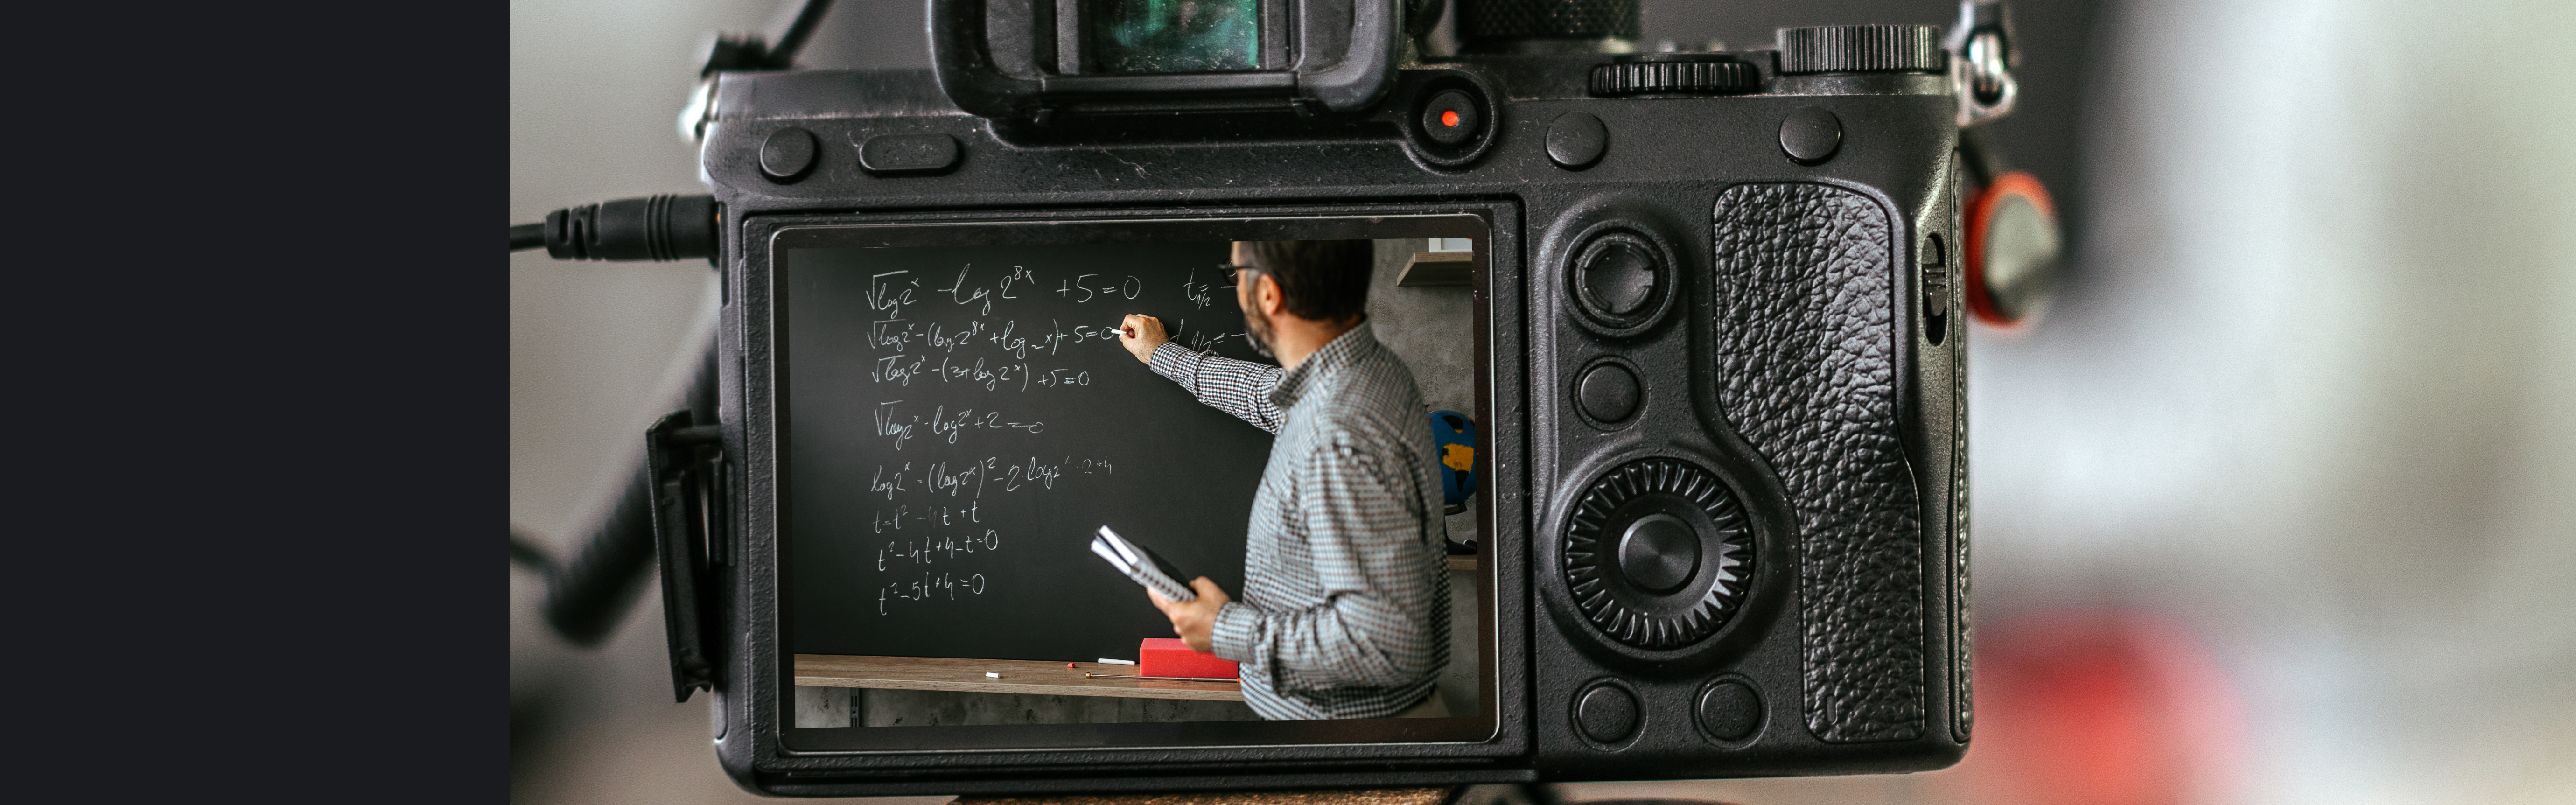 √log2ˣ - log 2⁸ˣ +5=0 t₁/₂=
√log2ˣ-(log2⁸ˣ+log₂ˣ)+5=0
√log2ˣ-(3+log2ˣ) +5=0
√log2ˣ-log2ˣ+2=0
log2ˣ-(log2ˣ)²-2log2 2+4
t=t²-4t+t
t²-4t+4-t=0
t²-5t+4=0